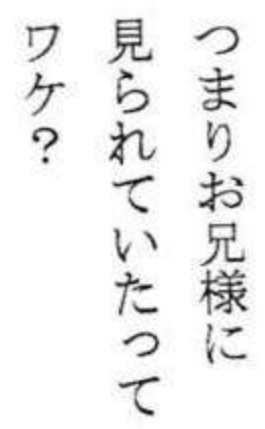 つまりお兄様に
見られていたって
ワケ？